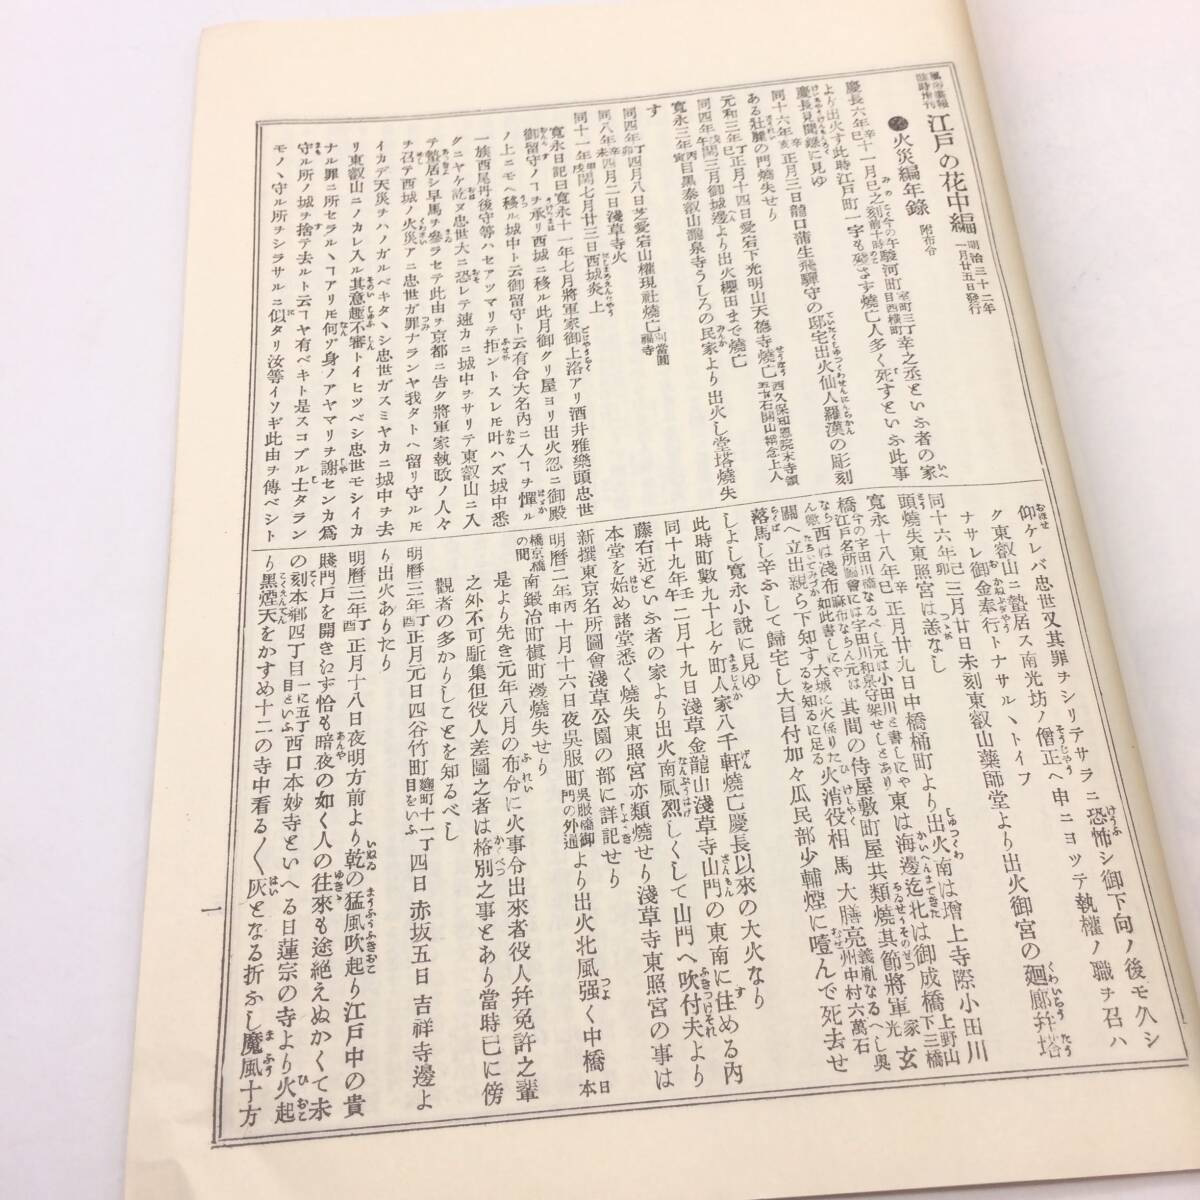 風俗畫報
臨時增刊
江戸の花中編
明治三十二年
一月廿五日發行
火災編年錄 附布令
慶長六年辛丑十一月巳之刻駿河町幸之丞といふ者の家
より出火す此時江戸町一宇も殘らす燒亡人多く死すといふ此事
慶長見聞錄に見ゆ
同十六年辛亥正月三日龍口蒲生飛驒守の邸宅出火仙人羅漢の彫刻
ある壯麗の門燒失せり
元和三年丁巳正月十四日愛宕下光明山天德寺燒亡
同四年戊午閏三月御城邊より出火櫻田まで燒亡
寛永三年丙寅目黑泰叡山瀧泉寺うしろの民家より出火し堂塔燒失
す
同四年丁卯四月八日芝愛宕山權現社燒亡
同八年辛未四月二日淺草寺火
同十一年甲戌閏七月廿三日西城炎上
寛永日記曰寛永十一年七月將軍家御上洛アリ酒井雅樂頭忠世
御留守ノヿヲ承リ西城ニ移ル此月御クリ屋ヨリ出火忽ニ御殿
ノ上ニモヘ移ル城中ト云御留守ト云有合大名內ニ入ヿヲ憚ル
一族西尾丹後守等ハセアツマリテ拒ントスレモ叶ハズ城中悉
クニヤケ訖ヌ忠世大ニ恐レテ速カニ城中ヲサリテ東叡山ニ入
テ蟄居シ早馬ヲ參ラセテ此由ヲ京都ニ告ク將軍家執政ノ人々
ヲ召テ西城ノ火災アニ忠世ガ罪ナランヤ我タトヘ留リ守ルモ
イカデ天災ヲハノガルベキタヽシ忠世ガスミヤカニ城中ヲ去
リ東叡山ニノカレ入ル其意趣不審トイヒツベシ忠世モシイカ
ナル罪ニ所セラルヽヿアリモ何ゾ身ノアヤマリヲ謝センカ爲
守ル所ノ城ヲ捨テ去ルト云ヿヤ有ベキト是スコブル士タラン
モノヽ守ル所ヲシラサルニ似タリ汝等イソギ此由ヲ傳ベシト
仰ケレバ忠世又其罪ヲシリテサラニ恐怖シ御下向ノ後モ久シ
ク東叡山ニ蟄居ス南光坊ノ僧正ヘ申ニヨッテ執權ノ職ヲ召ハ
ナサレ御金奉行トナサルヽトイフ
同十六年己卯三月廿日未刻東叡山藥師堂より出火御宮の廻廊幷塔
頭燒失東照宮は恙なし
寛永十八年辛巳正月廿九日中橋桶町より出火南は增上寺際小田川
橋東は海邊迄北は御成橋
西は淺布其間の侍屋敷町屋共類燒其節將軍家
大城に火係りた火消役相馬大膳亮
鬪へ立出親ら下知するを知るに足る
落馬し辛ふして歸宅し大目付加々爪民部少輔煙に噎んで死去せ
しよし寛永小說に見ゆ
此時町數九十七ヶ町人家八千軒燒亡慶長以來の大火なり
同十九年壬午二月十九日淺草金龍山淺草寺山門の東南に住める內
藤右近といふ者の家より出火南風烈しくして山門へ吹付夫より
本堂を始め諸堂悉く燒失東照宮亦類燒せり淺草寺東照宮の事は
新撰東京名所圖會淺草公園の部に詳記せり
明曆二年丙申十月十六日夜吳服町吳服橋御門の外通より出火北風强く中橋日本
橋京橋の間南鍛冶町槇町邊燒失せり
是より先き元年八月の布令に火事令出來者役人幷免許之輩
之外不可駈集但役人差圖之者は格別之事とあり當時已に傍
觀者の多かりしことを知るべし
明曆三年丁酉正月元日四谷竹町麴町十一丁目をいふ四日赤坂五日吉祥寺邊よ
り出火ありたり
明曆三年丁酉正月十八日夜明方前より乾の猛風吹起り江戸中の貴
賤門戸を開きえす恰も暗夜の如く人の往來も途絕えぬかくて未
の刻本鄕四丁目一に五丁目といふ西口本妙寺といへる日蓮宗の寺より火起
り黑煙天をかすめ十二の寺中看る〱灰となる折ふし魔風十方
一